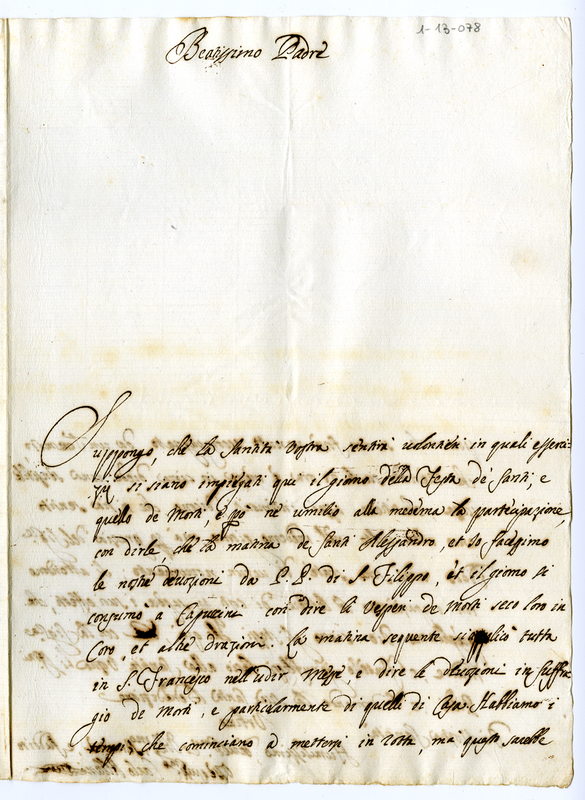 1-13-078
Beatissimo Padre
Suppongo, che la Santità Vostra sentirà volontieri in quali esserci-
si siano impiegati qui il giorno della Festa de Santi, e
quello de Morti, e però ne umilio alla medema la partecipazione,
con dirle, che la matina de Santi Alessandro, et io facessimo
le nostre devozioni da P. P. di S. Filippo, et il giorno si
consumò a Capucini con dire li Vesperi de Morti seco loro in
Coro, et altre Orazioni. La matina sequente si tutta
in S. Francesco nell'udir Messe, e dire le devozioni in suffra
gio de Morti, e particolarmente di quelli di Casa. Habbiamo i
tempi, che cominciano a mettersi in rotta, ma questo sarebbe